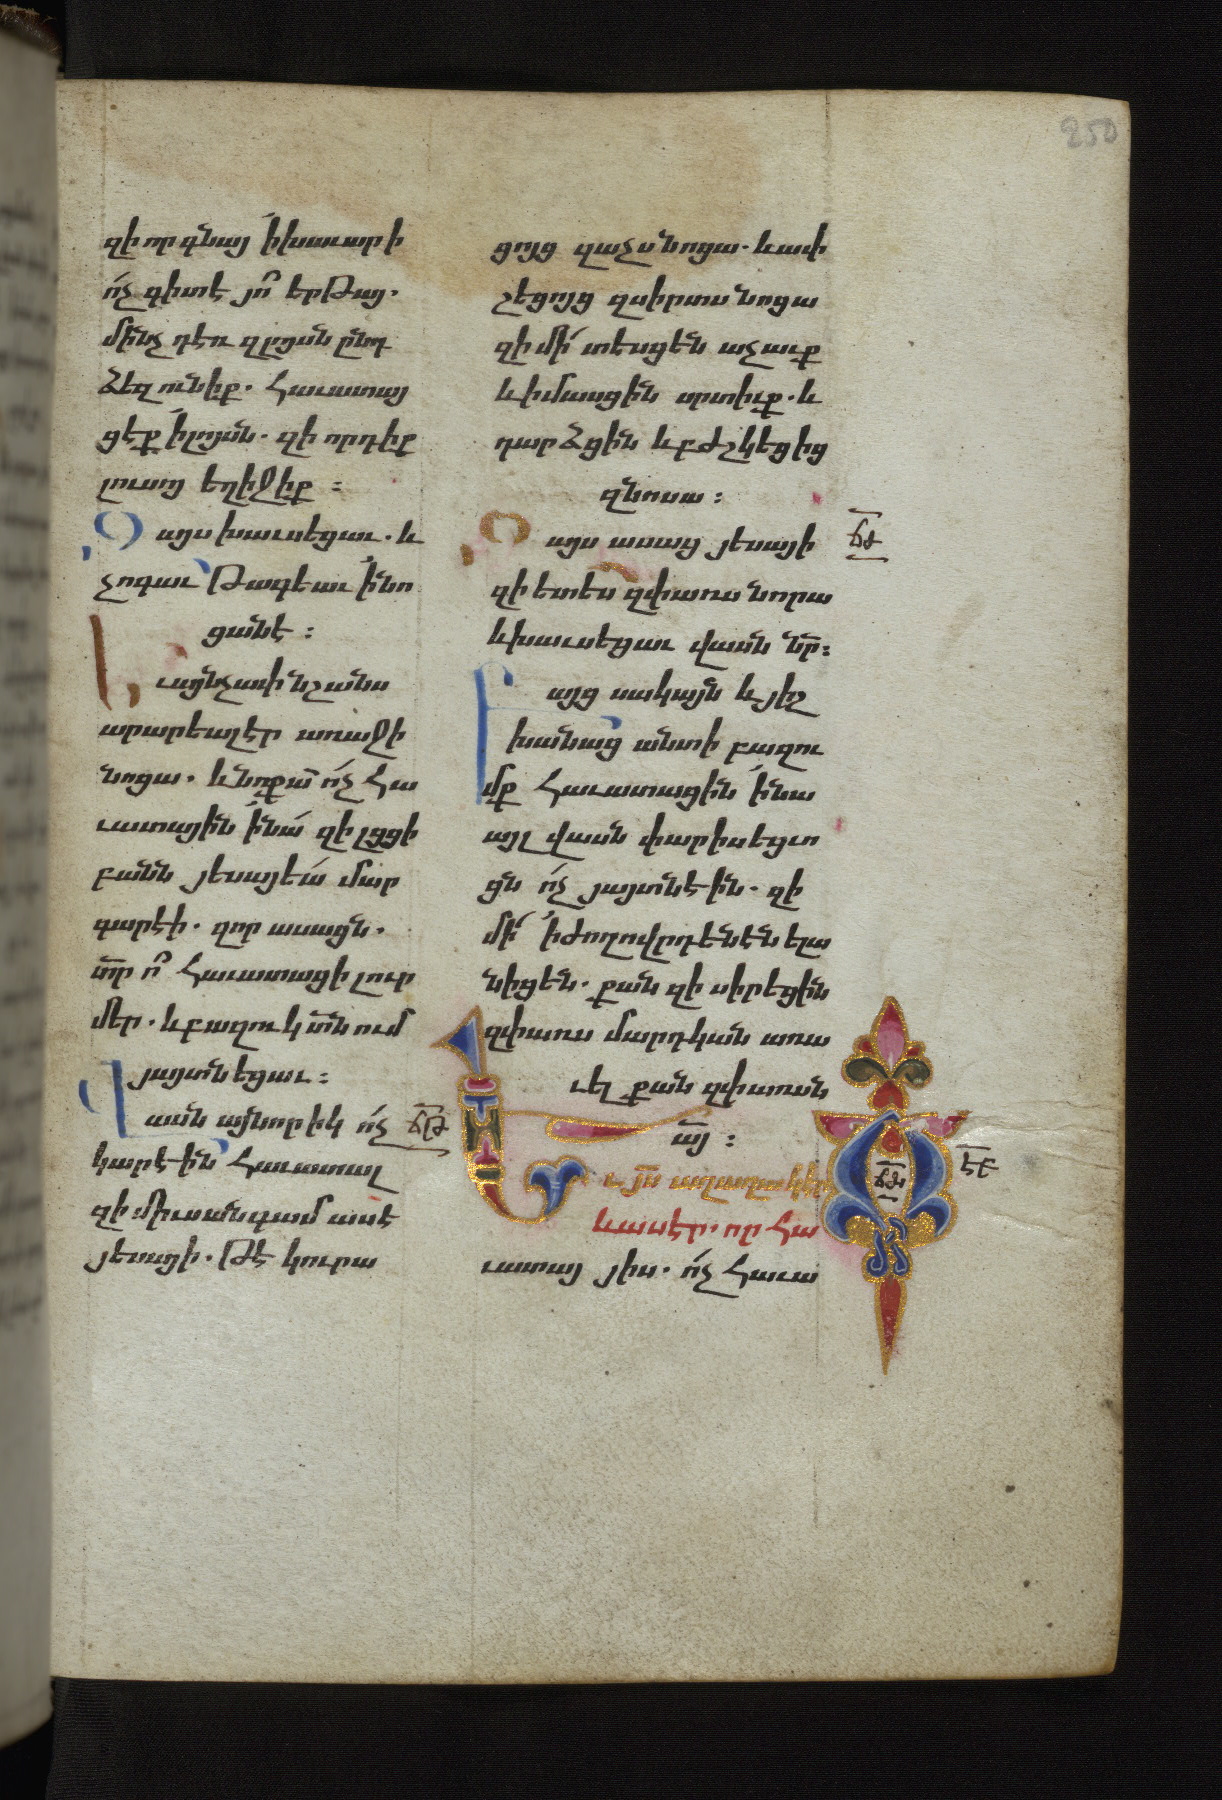 250
զի որ գնայ ի խաւարի
ո՛չ գիտէ յո՞ երթայ.
մինչ դեռ զլոյսն ընդ
ձեզ ունիք. հաւատայ
ցէք ի լոյսն. զի որդիք
լուսոյ եղիջիք ։
Զայս խաւսեցաւ. և
չոգաւ թագեաւ ի նո
ցանէ ։
Եւ այնչափ նշանս
արարեալ էր առաջի
նոցա. և նոքա ո՛չ հա
ւատային ի նա՛ զի լցցի
բանն յեսայեա՛ մար
գարէի. զոր ասացն.
տ̅ր ո՞ հաւատաց ի լուր
մեր. և բազուկ տ̅ն ում
յայտնեցաւ ։
Վասն այնորիկ ո՛չ
ճ̅թ
կարէին հաւատալ
զի միւսանգամ ասէ
յեսայի. թէ կուրա
ցոյց զաչս նոցա. և ափ
շեցոյց զսիրտս նոցա
զի մի՛ տեսցեն աչաւք
և իմասցին սրտիւք. և
դարձցին և բժշկեցից
զնոսա ։
Զայս ասաց յեսայի
ճ̅ժ
զի ետես զփառս նորա
և խաւսեցաւ վասն նր̅ ։
Բայց սակայն և յիշ
խանաց անտի բազու
մք հաւատացին ի նա
այլ վասն փարիսեցւո
ցն ո՛չ յայտնէին. զի
մի՛ ի ժողովրդենեն ելա
նիցեն. քանզի սիրեցին
զփառս մարդկան առա
ւել քան զփառսն
ա̅յ ։
Եւ յ̅ս աղաղակէր
և ասէր. որ հա
ւատայ յիս. ո՛չ հաւա